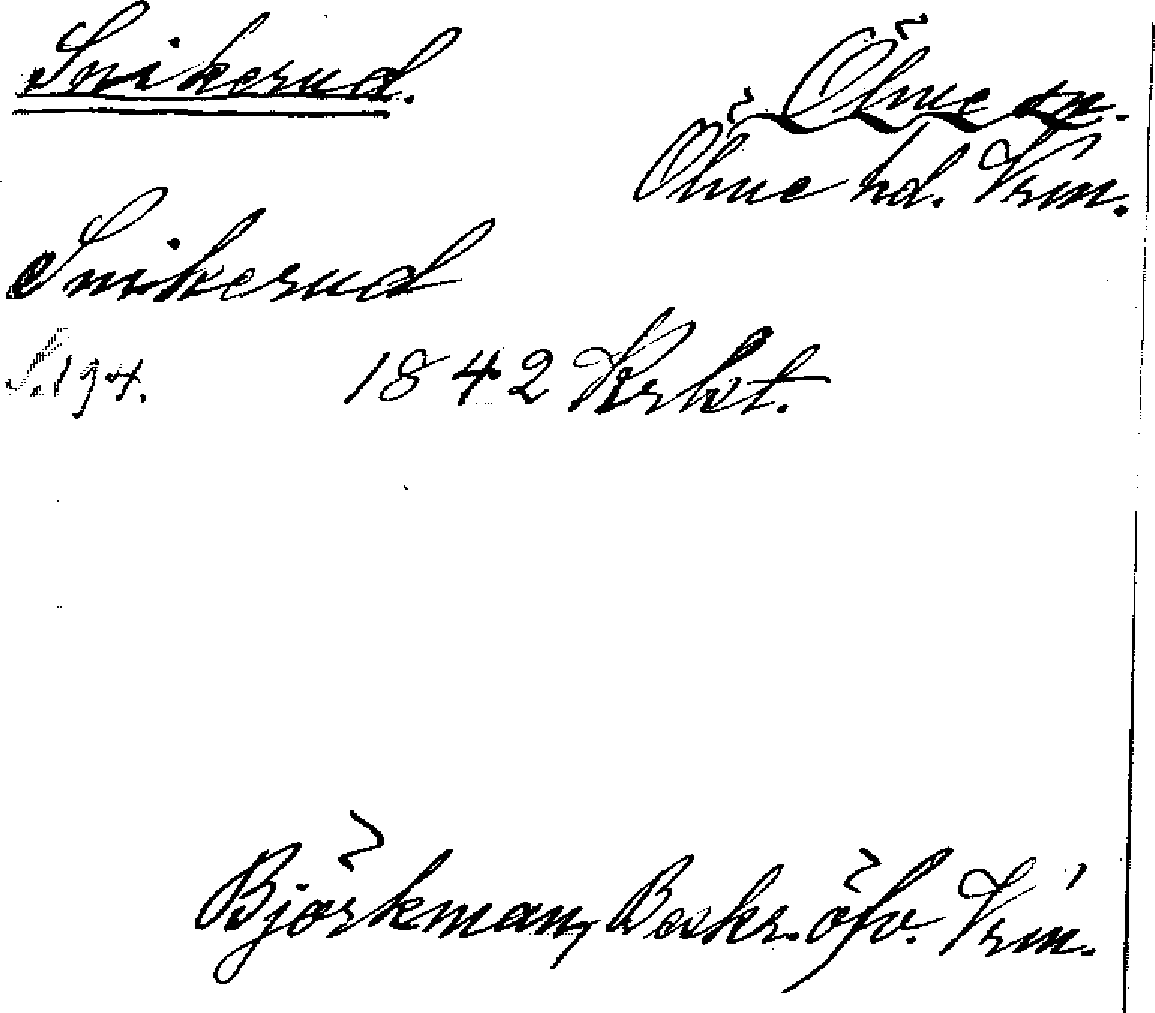 Snikerud.
Ölme sn.
Ölme hd. Vrm.
Snikerud
S. 194. 1842 Krkt.
Björkman, Beskr. öfv. Vrm.